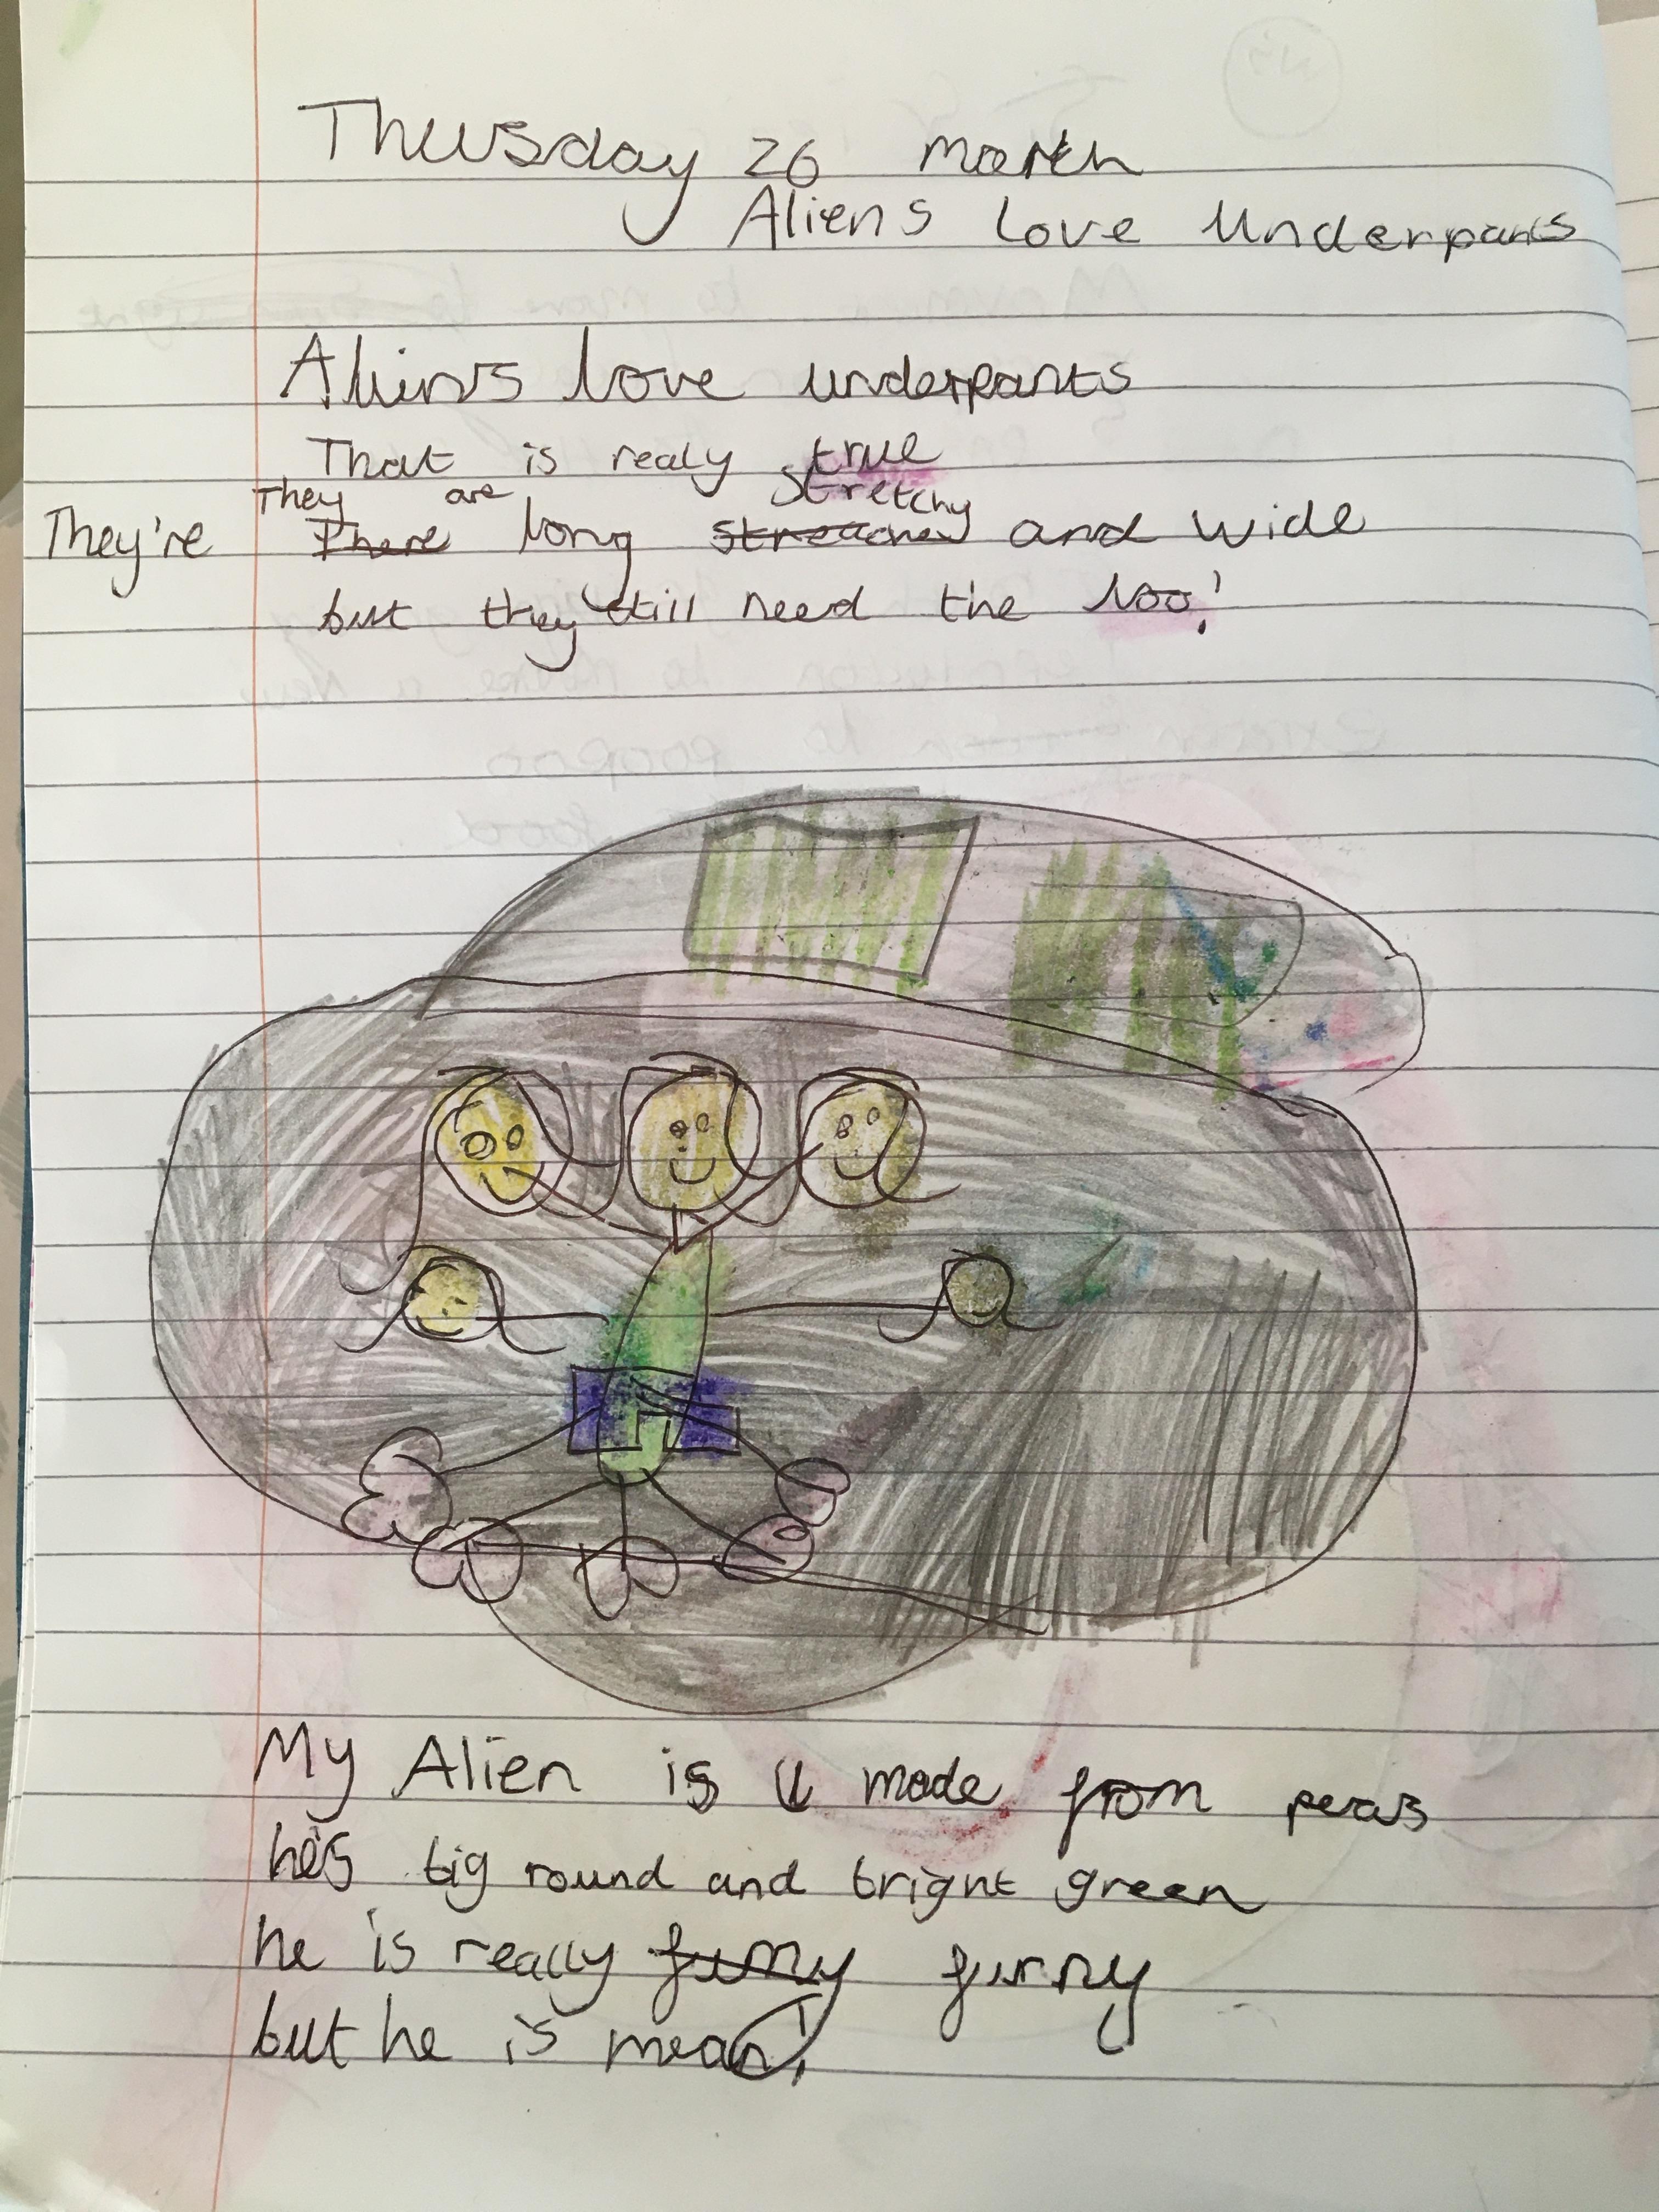 Thursday 26 March
Aliens Love Underpants
Aliens love underpants
That is realy true
They are stretchy
They're There long and wide
but they still need the loo!
My Alien is made from pears
he's big round and bright green
he is really funny funny
but he is mean!